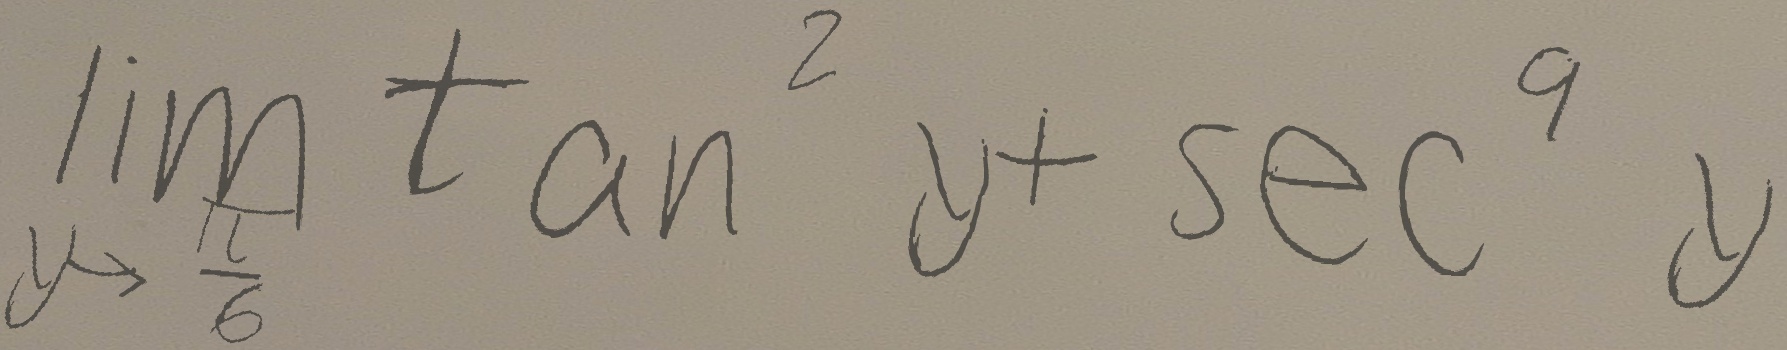 \lim_{y \to \frac{\pi}{6}} \tan^2 y + \sec^9 y